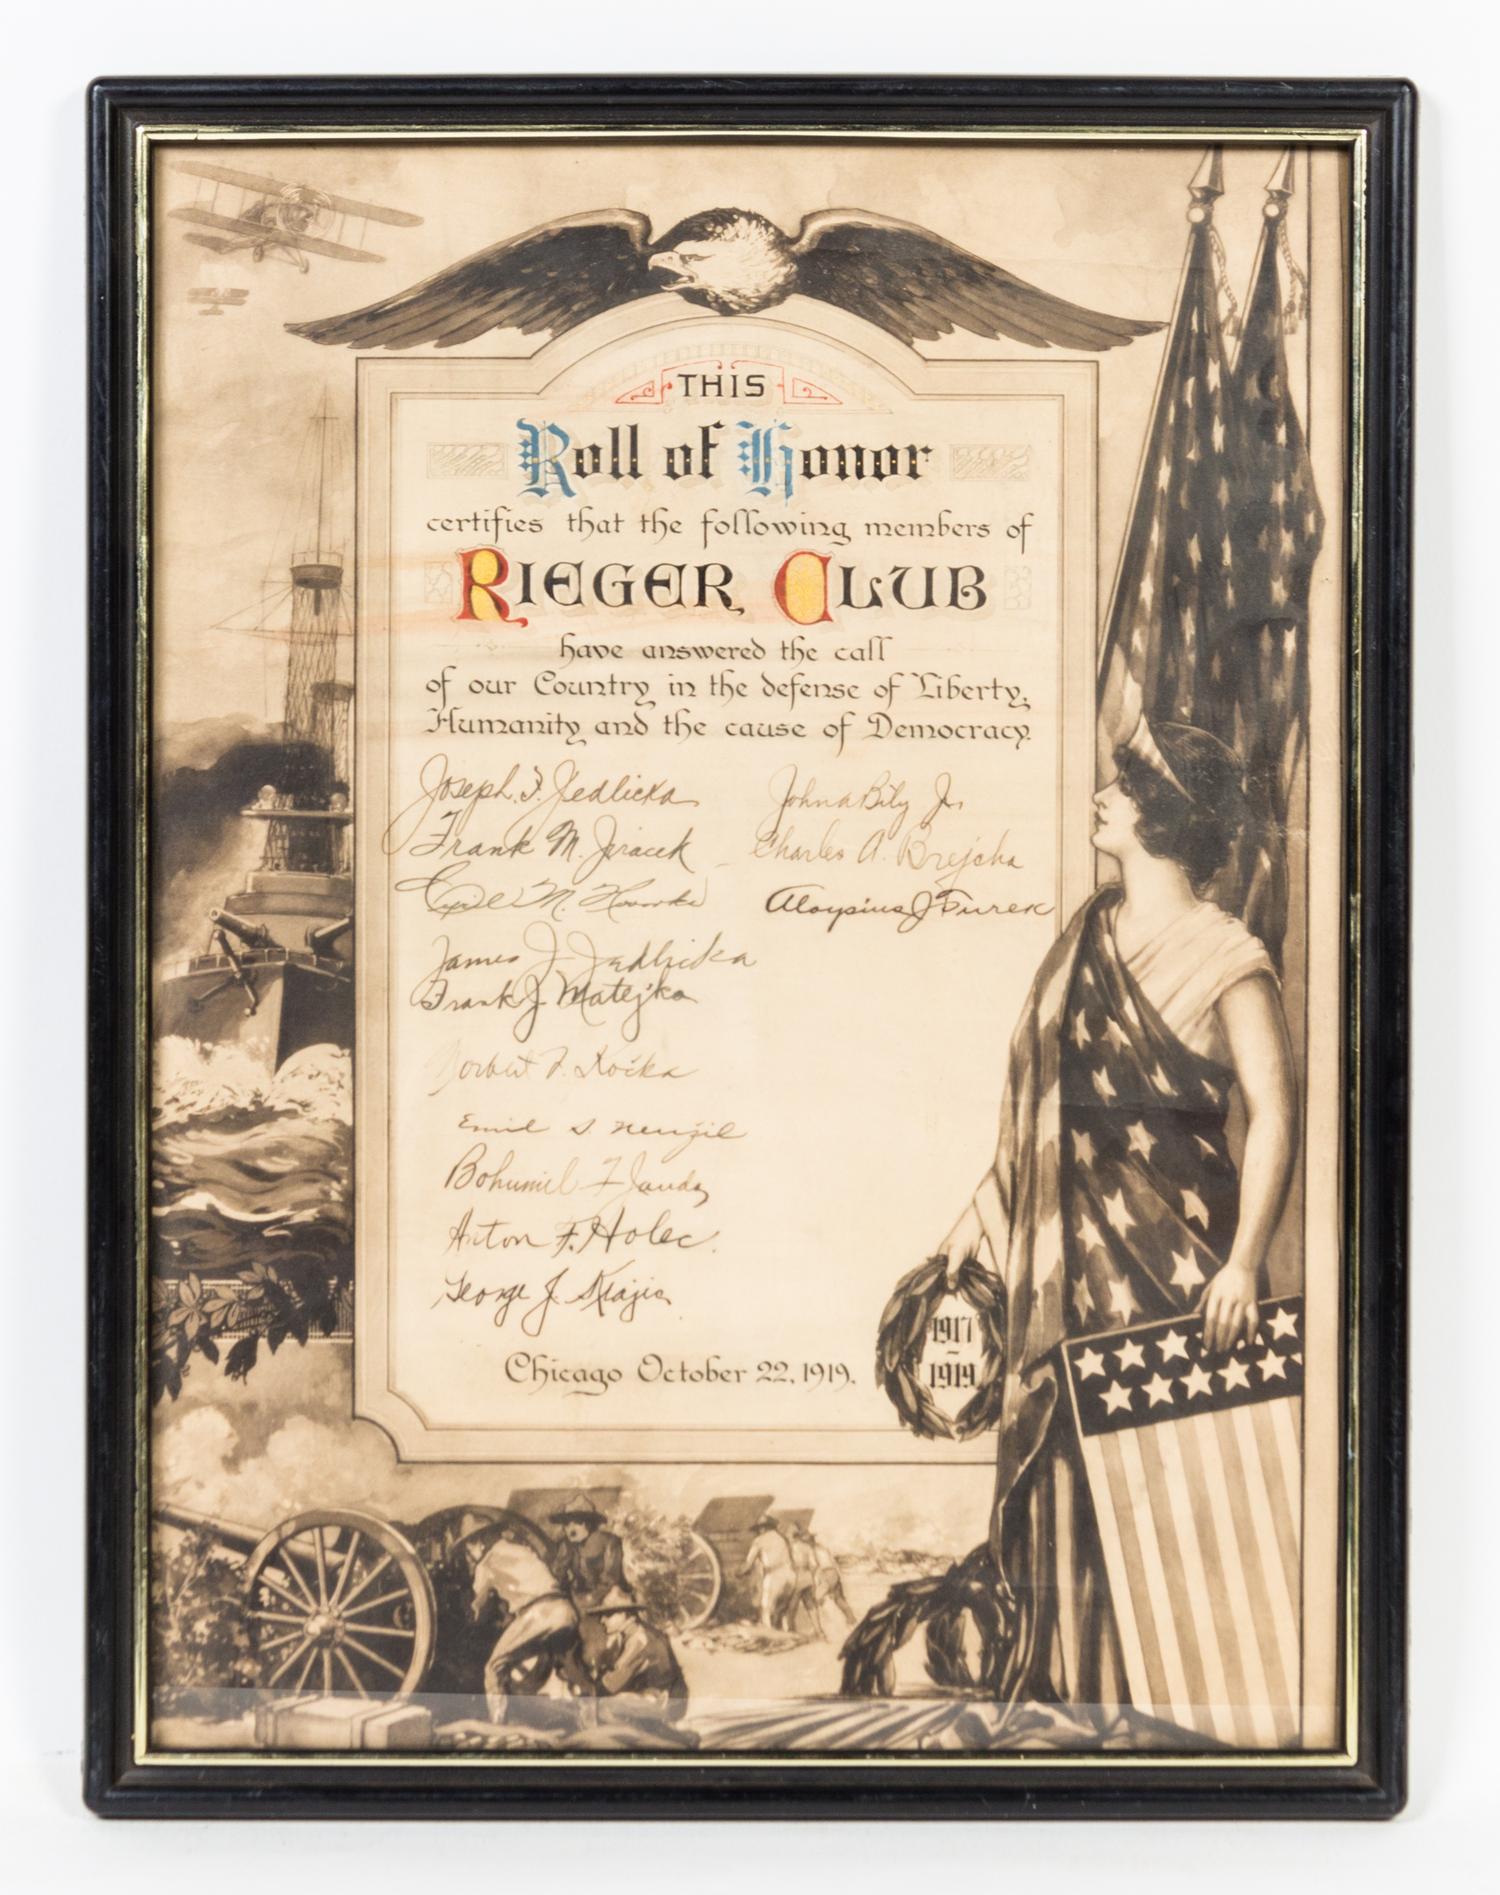 THIS
Roll of Honor
certifies that the following members of
RIEGER CLUB
have answered the call
of our Country in the defense of Liberty,
Humanity and the cause of Democracy.
Joseph. F. Jedlicka
Frank M. Jiracek
Cyril M.
James J. Jedlicka
Frank J. Matejka
Norbert F. Kocka
Emil S. Nengil
Bohumil F. Janda
Anton F. Holec.
George J. Krajic
John A Bily Jr.
Charles A. Brejcha
Aloysius J Turek
Chicago October 22, 1919.
1917
–
1919